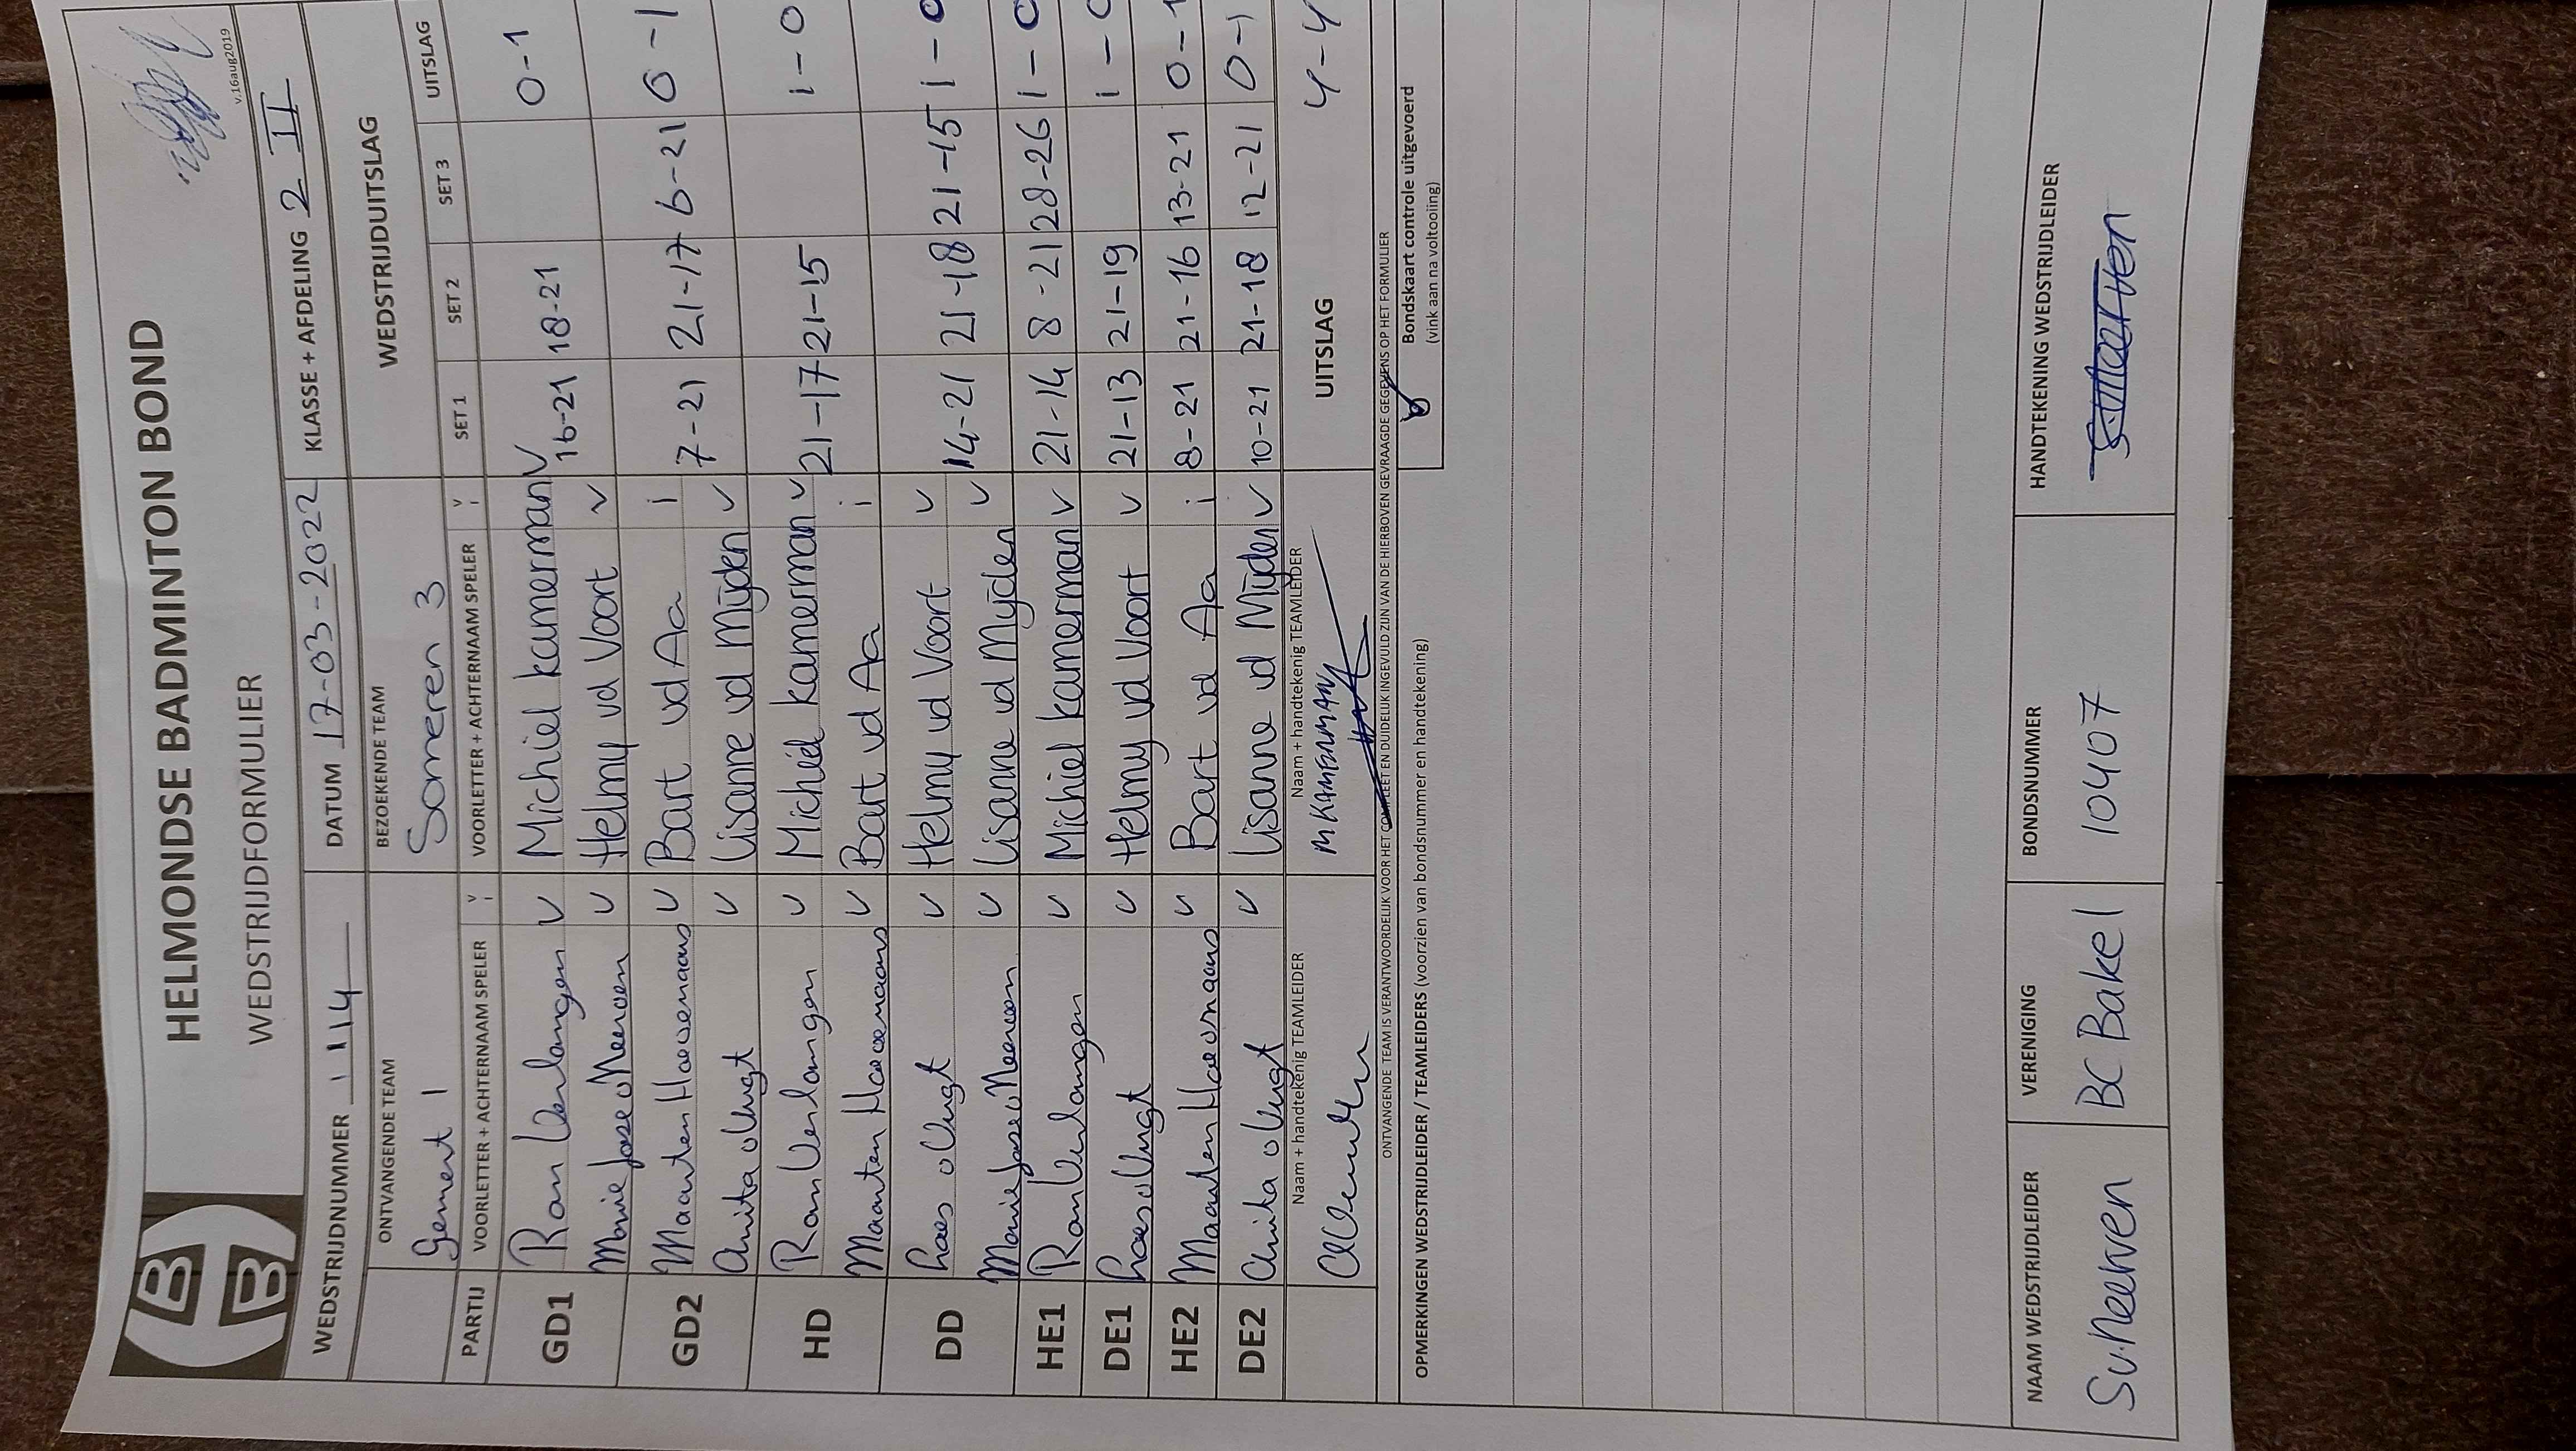 HELMONDSE BADMINTON BOND
WEDSTRIJDFORMULIER
v.16aug2019
WEDSTRIJDNUMMER 1114 DATUM 17-03-2022 KLASSE + AFDELING 2 II
ONTVANGENDE TEAM BEZOEKENDE TEAM WEDSTRIJDUITSLAG
Gemert 1 Someren 3
PARTIJ VOORLETTER + ACHTERNAAM SPELER V i VOORLETTER + ACHTERNAAM SPELER V i SET 1 SET 2 SET 3 UITSLAG
GD1 Ron Verlangen V Michiel Kamerman V 16-21 18-21 0-1
Marie Jose v Neerven V Helmy vd Voort V
GD2 Maarten Hoevenaars V Bart vd Aa i 7-21 21-17 6-21 0-1
Anita v Vugt V Lisanne vd Mijden V
HD Ron Verlangen V Michiel Kamerman V 21-17 21-15 1-0
Maarten Hoevenaars V Bart vd Aa i
DD Loes v Vugt V Helmy vd Voort V 14-21 21-18 21-15 1-0
Marie Jose v Neerven V Lisanne vd Mijden V
HE1 Ron Verlangen V Michiel Kamerman V 21-14 8-21 28-26 1-0
DE1 Loes v Vugt V Helmy vd Voort V 21-13 21-19 1-0
HE2 Maarten Hoevenaars V Bart vd Aa i 8-21 21-16 13-21 0-1
DE2 Anita v Vugt V Lisanne vd Mijden V 10-21 21-18 12-21 0-1
Naam + handtekenig TEAMLEIDER Naam + handtekenig TEAMLEIDER UITSLAG 4-4
M KAMERMAN
ONTVANGENDE TEAM IS VERANTWOORDELIJK VOOR HET COMPLEET EN DUIDELIJK INGEVULD ZIJN VAN DE HIERBOVEN GEVRAAGDE GEGEVENS OP HET FORMULIER
OPMERKINGEN WEDSTRIJDLEIDER / TEAMLEIDERS (voorzien van bondsnummer en handtekening)
Bondskaart controle uitgevoerd
(vink aan na voltooiing)
NAAM WEDSTRIJDLEIDER VERENIGING BONDSNUMMER HANDTEKENING WEDSTRIJDLEIDER
S v. Neerven BC Bakel 10407